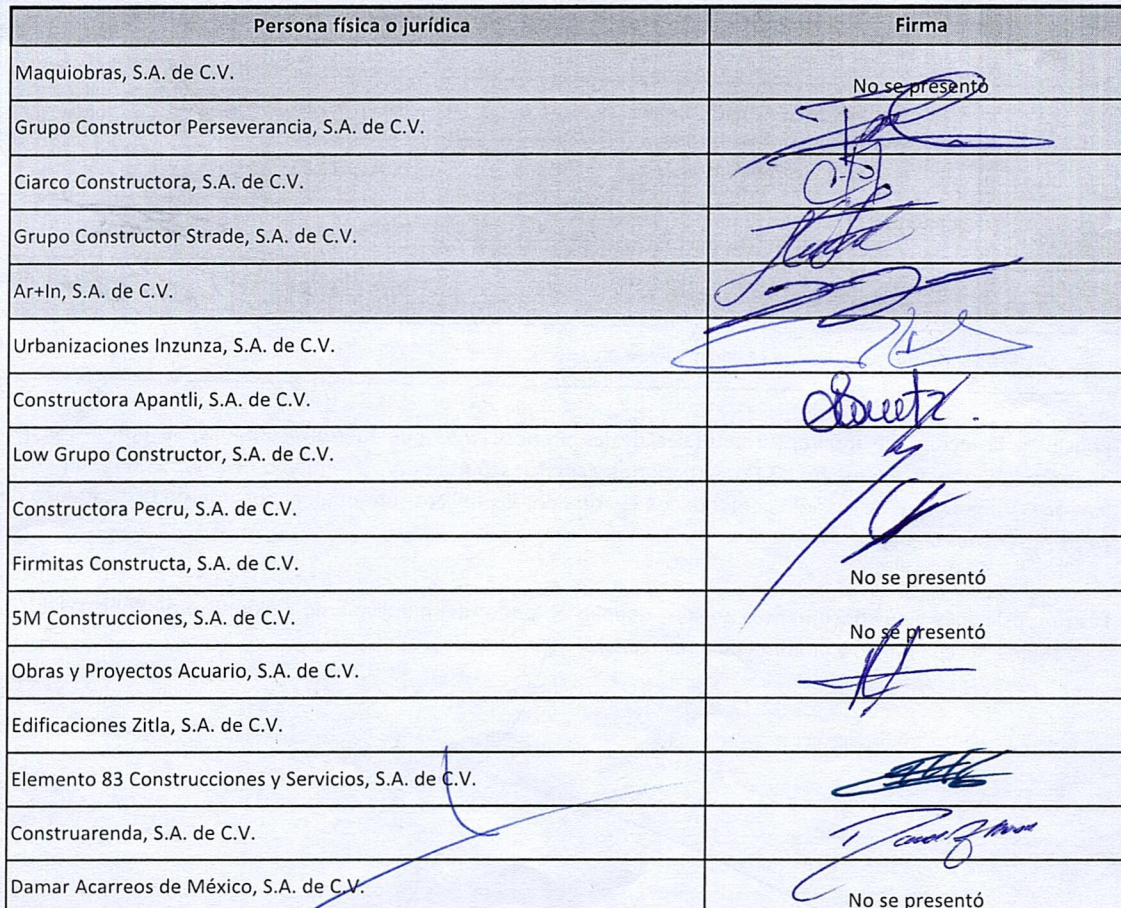 Persona física o jurídica Firma
Maquiobras, S.A. de C.V. No se presentó
Grupo Constructor Perseverancia, S.A. de C.V.
Ciarco Constructora, S.A. de C.V.
Grupo Constructor Strade, S.A. de C.V.
Ar+In, S.A. de C.V.
Urbanizaciones Inzunza, S.A. de C.V.
Constructora Apantli, S.A. de C.V.
Low Grupo Constructor, S.A. de C.V.
Constructora Pecru, S.A. de C.V.
Firmitas Constructa, S.A. de C.V. No se presentó
5M Construcciones, S.A. de C.V. No se presentó
Obras y Proyectos Acuario, S.A. de C.V.
Edificaciones Zitla, S.A. de C.V.
Elemento 83 Construcciones y Servicios, S.A. de C.V.
Construarenda, S.A. de C.V.
Damar Acarreos de México, S.A. de C.V. No se presentó